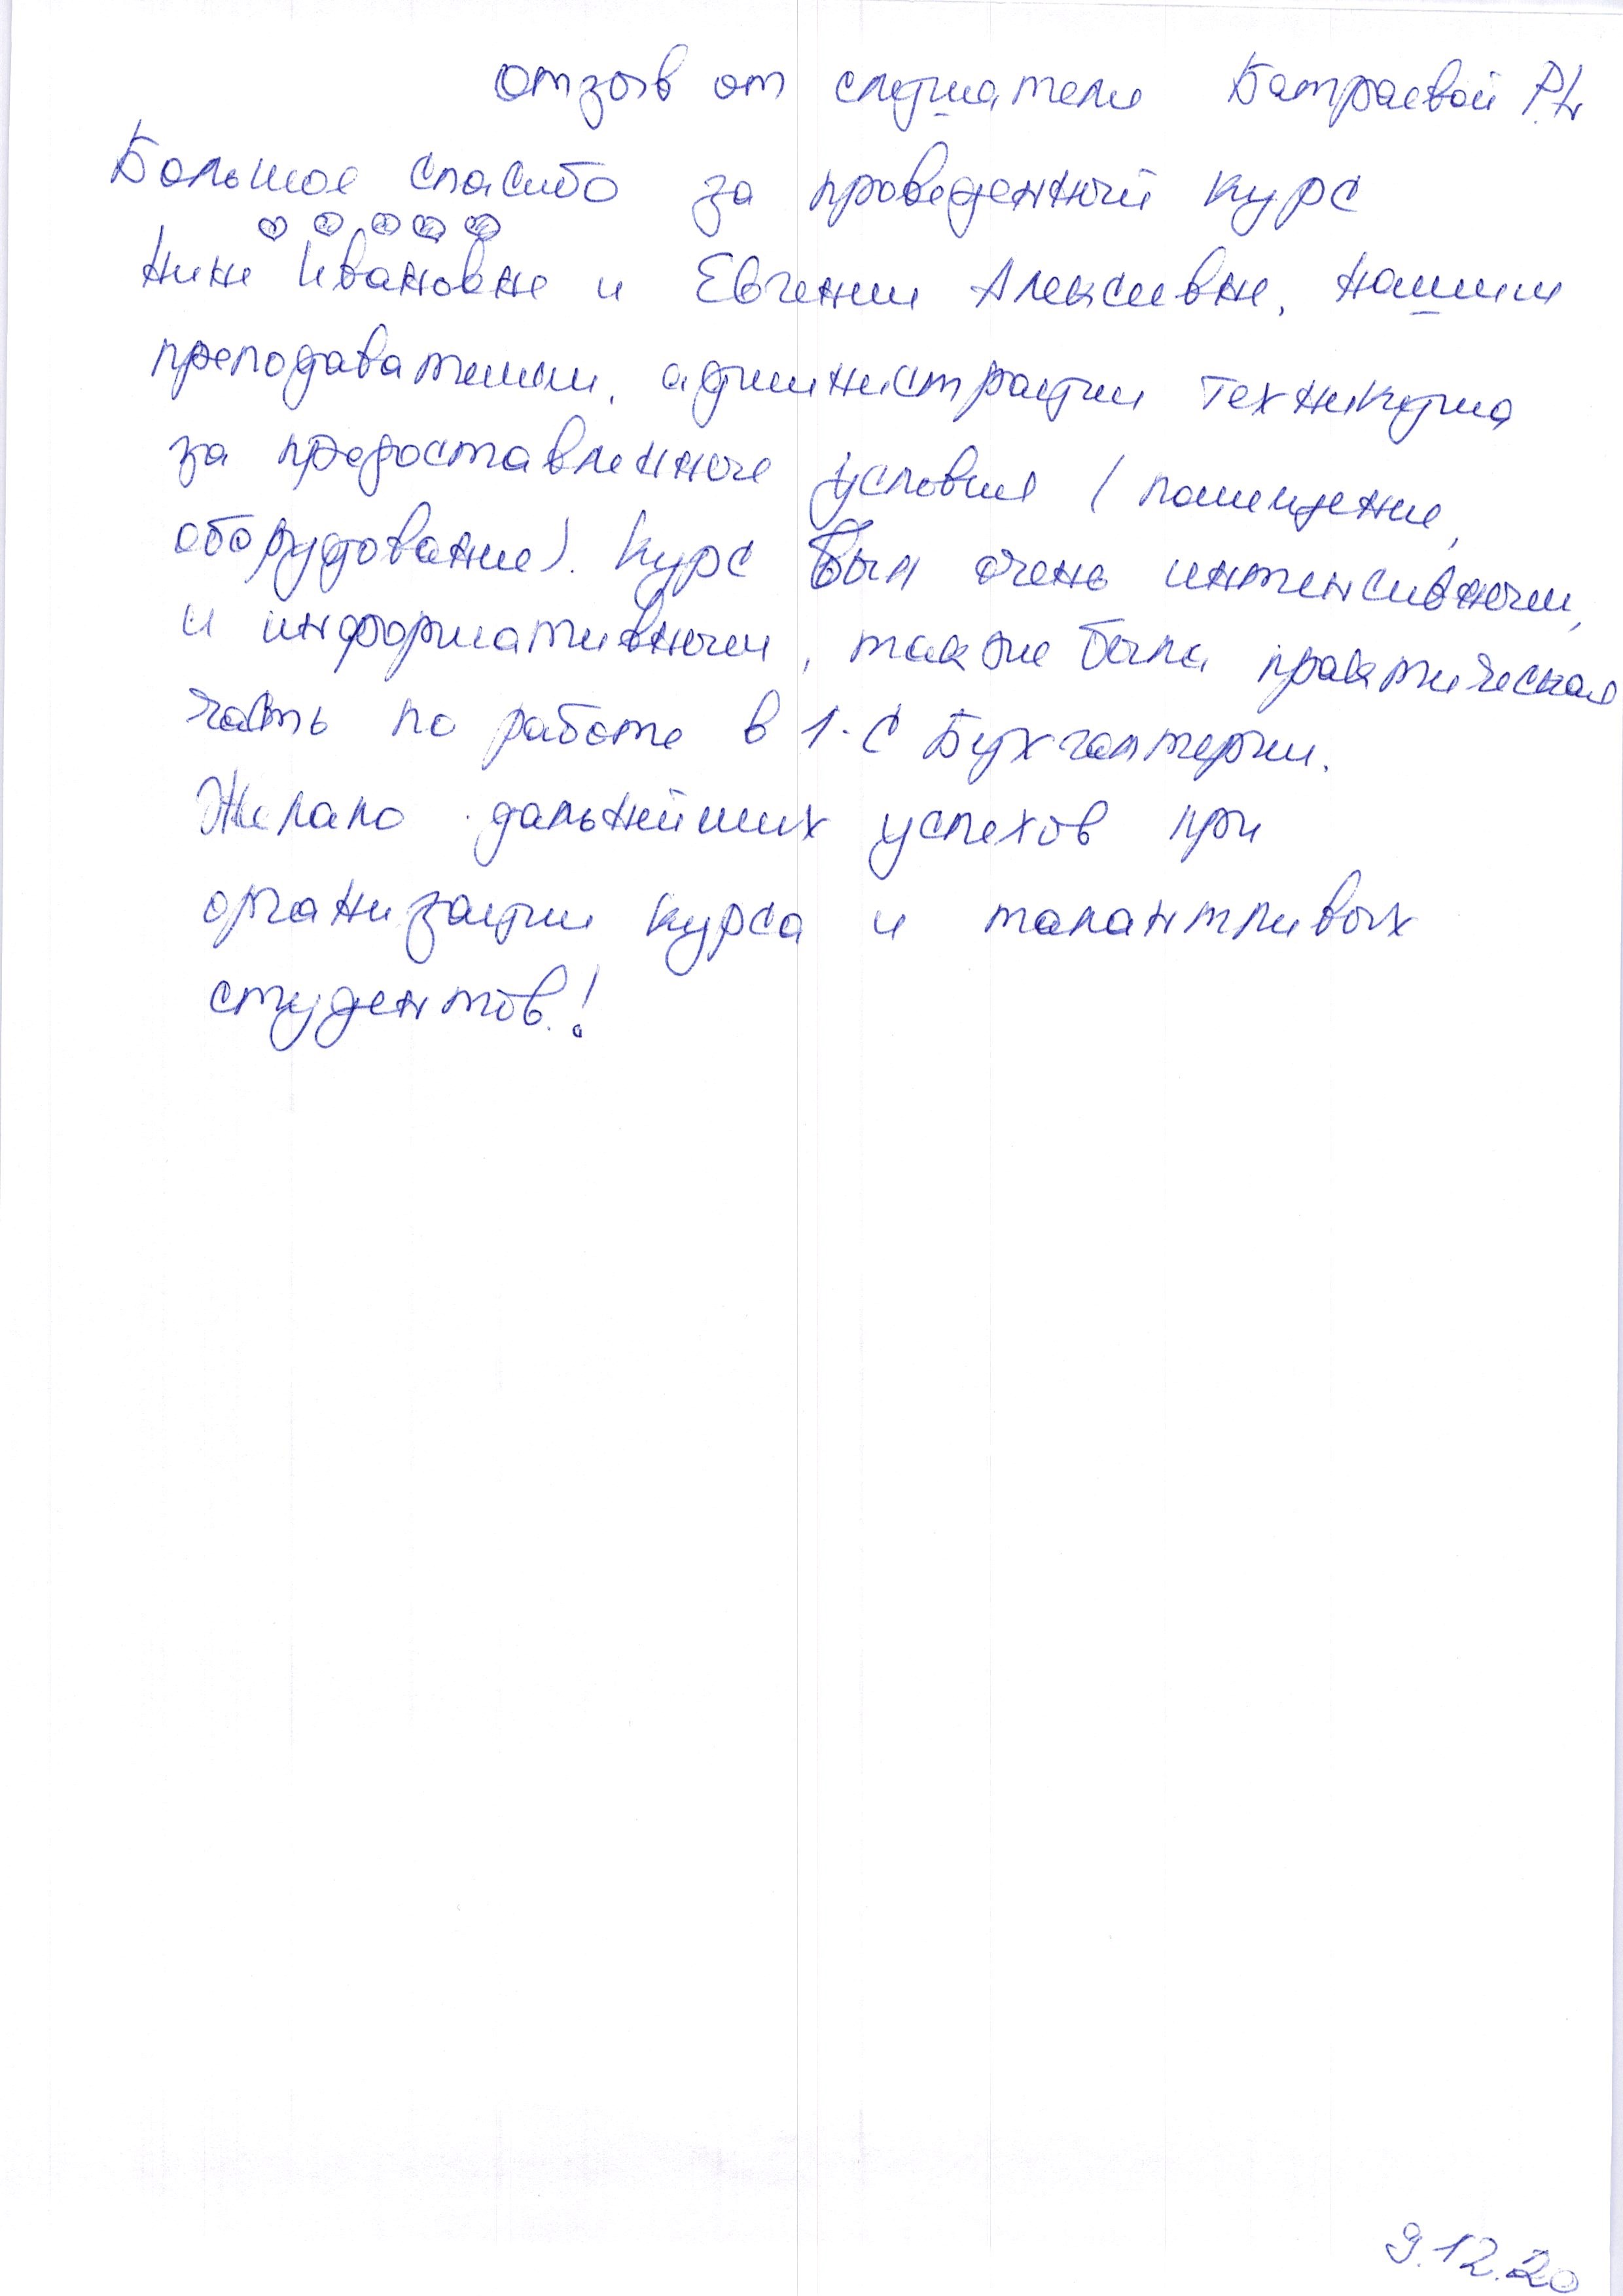 Отзыв от слушатели Батраевой
Большое спасибо за проведенный курс
Нине Ивановне и Евгении Алексеевне, нашим
преподавателям, администрации Техникума
за предоставленные условия (помещение,
оборудование). Курс был очень интенсивным,
и информативным, также была практическая
часть по работе в 1.С Бухгалтерии.
Желаю дальнейших успехов при
организации курса и талантливых
студентов!
9.12.20